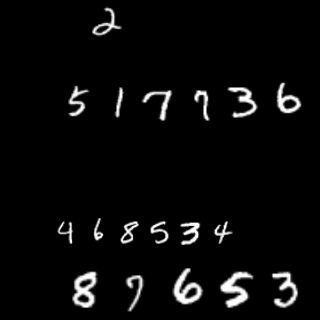 2
517736
468534
87653